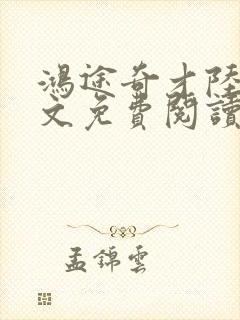 鴻途奇才陸
文免費閱讀
孟錦雲